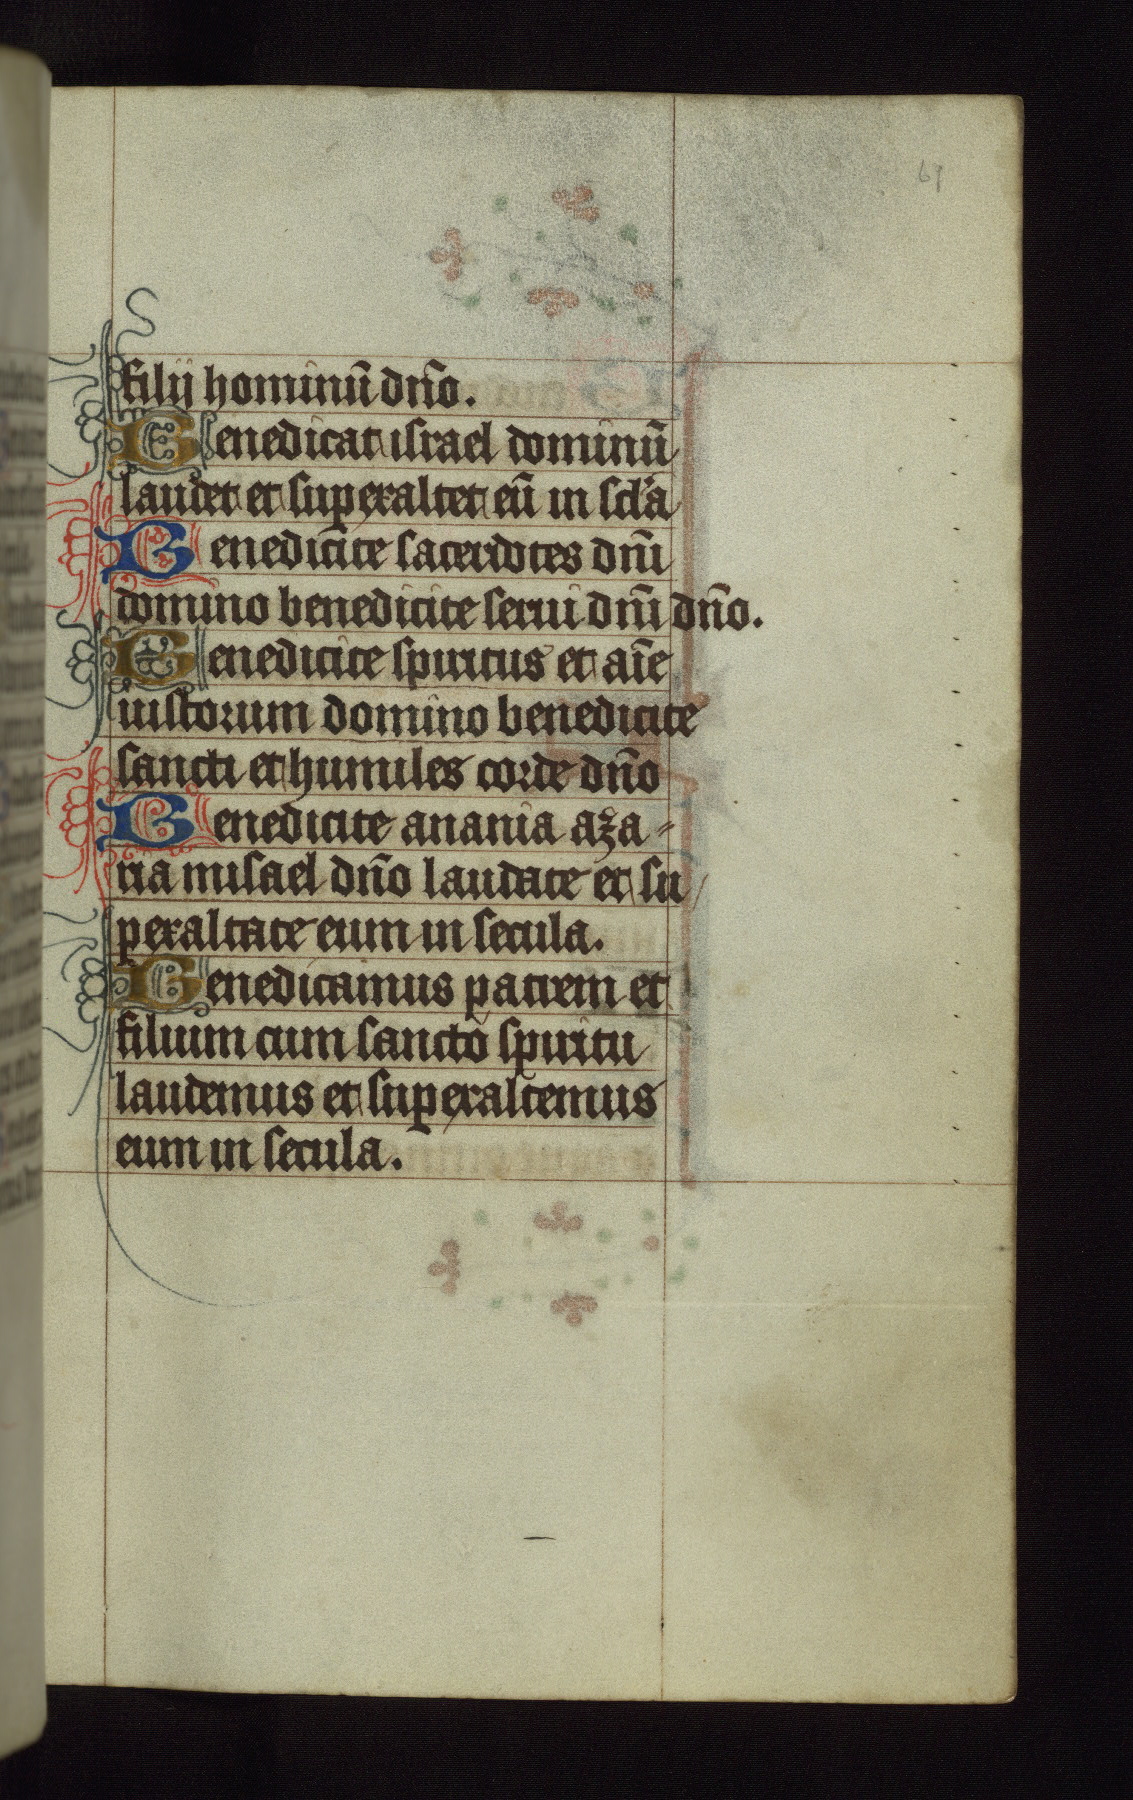 69
filij hominū dn̄o.
Benedicat israel dominū
laudet et superaltet eū in scl'a
Benedicite sacerdotes dn̄i
domino benedicite serui dn̄i dn̄o.
Benedicite spiritus et aīe
iustorum domino benedicite
sancti et humiles corde dn̄o
Benedicite anania aza-
ria misael dn̄o laudate et su
peraltate eum in secula.
Benedicamus patrem et
filium cum sancto spiritu
laudemus et superaltemus
eum in secula.